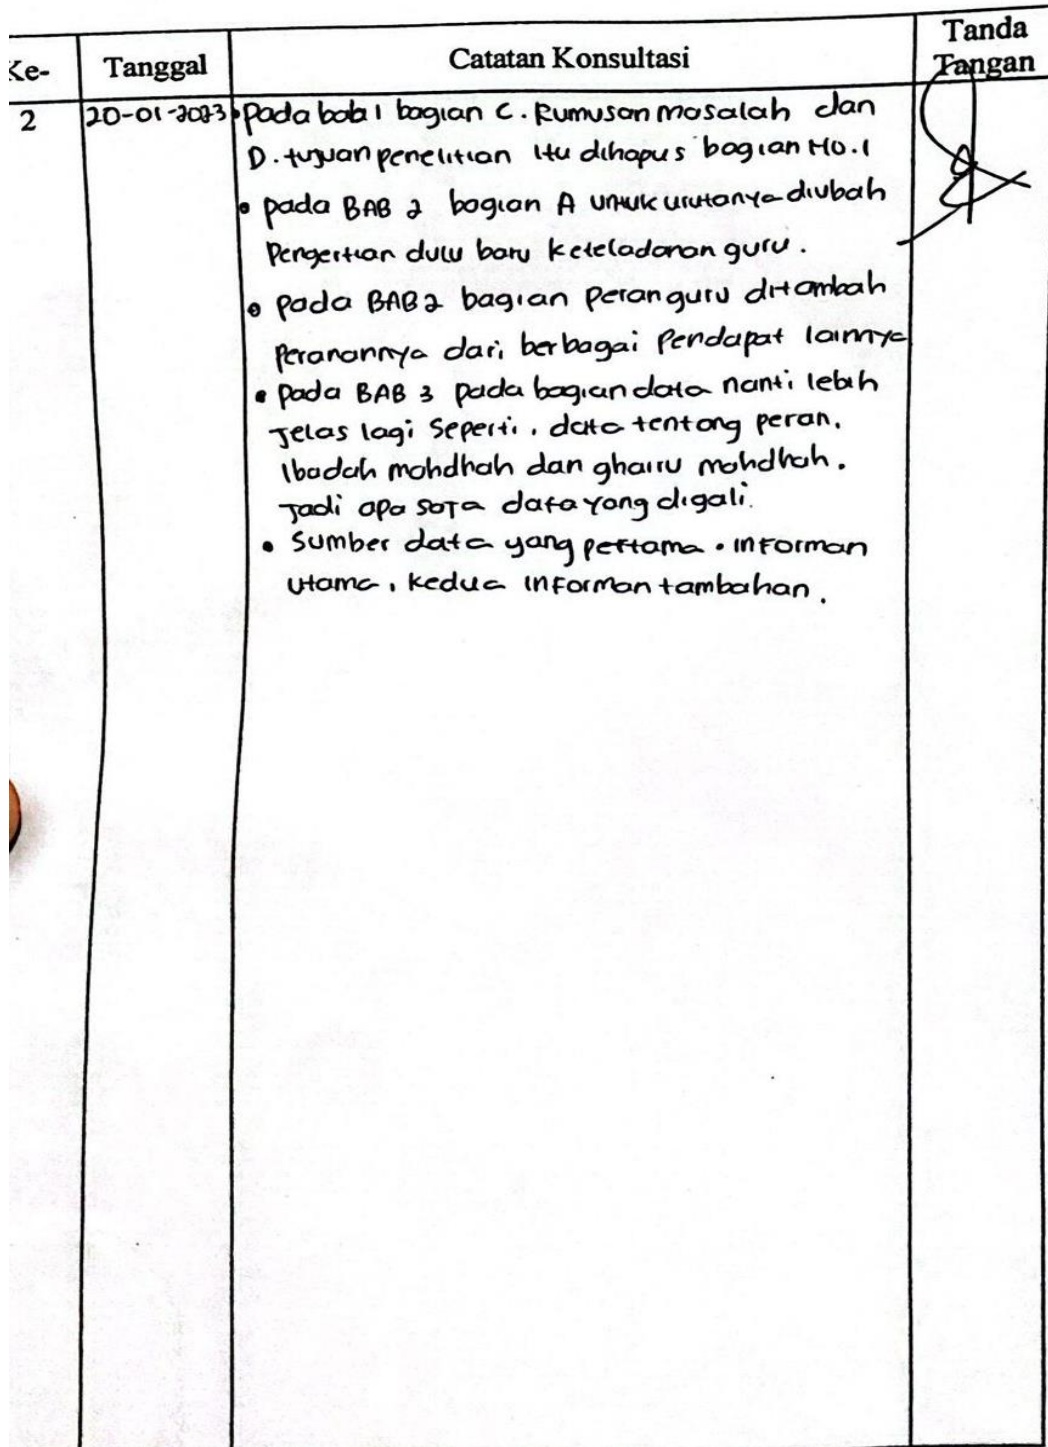 Ke- Tanggal Catatan Konsultasi Tanda Tangan
2 20-01-2023 • Pada bab 1 bagian C. Rumusan masalah dan
D. tujuan penelitian itu dihapus bagian No.1
• pada BAB 2 bagian A untuk urutanya diubah
Pengertian dulu baru keteladanan guru.
• pada BAB 2 bagian peran guru ditambah
Peranannya dari berbagai Pendapat lainnya
• pada BAB 3 pada bagian data nanti lebih
Jelas lagi Seperti, data tentang peran,
Ibadah mahdhah dan ghairu mahdhah.
Jadi apa saja data yang digali.
• Sumber data yang pertama. informan
utama, kedua informan tambahan.